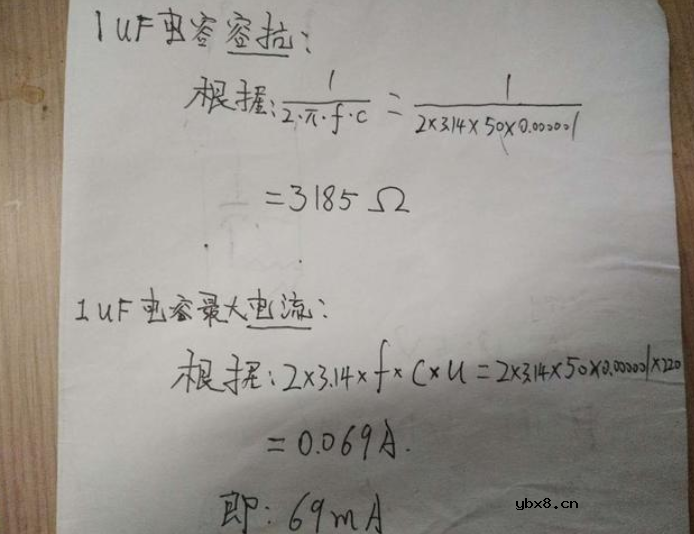 1uF电容容抗:
根据: 1/(2·π·f·c) = 1/(2×3.14×50×0.000001)
=3185Ω
1uF电容最大电流:
根据:2×3.14×f×C×U=2×3.14×50×0.000001×220
=0.069A.
即: 69mA
ybx8.cn